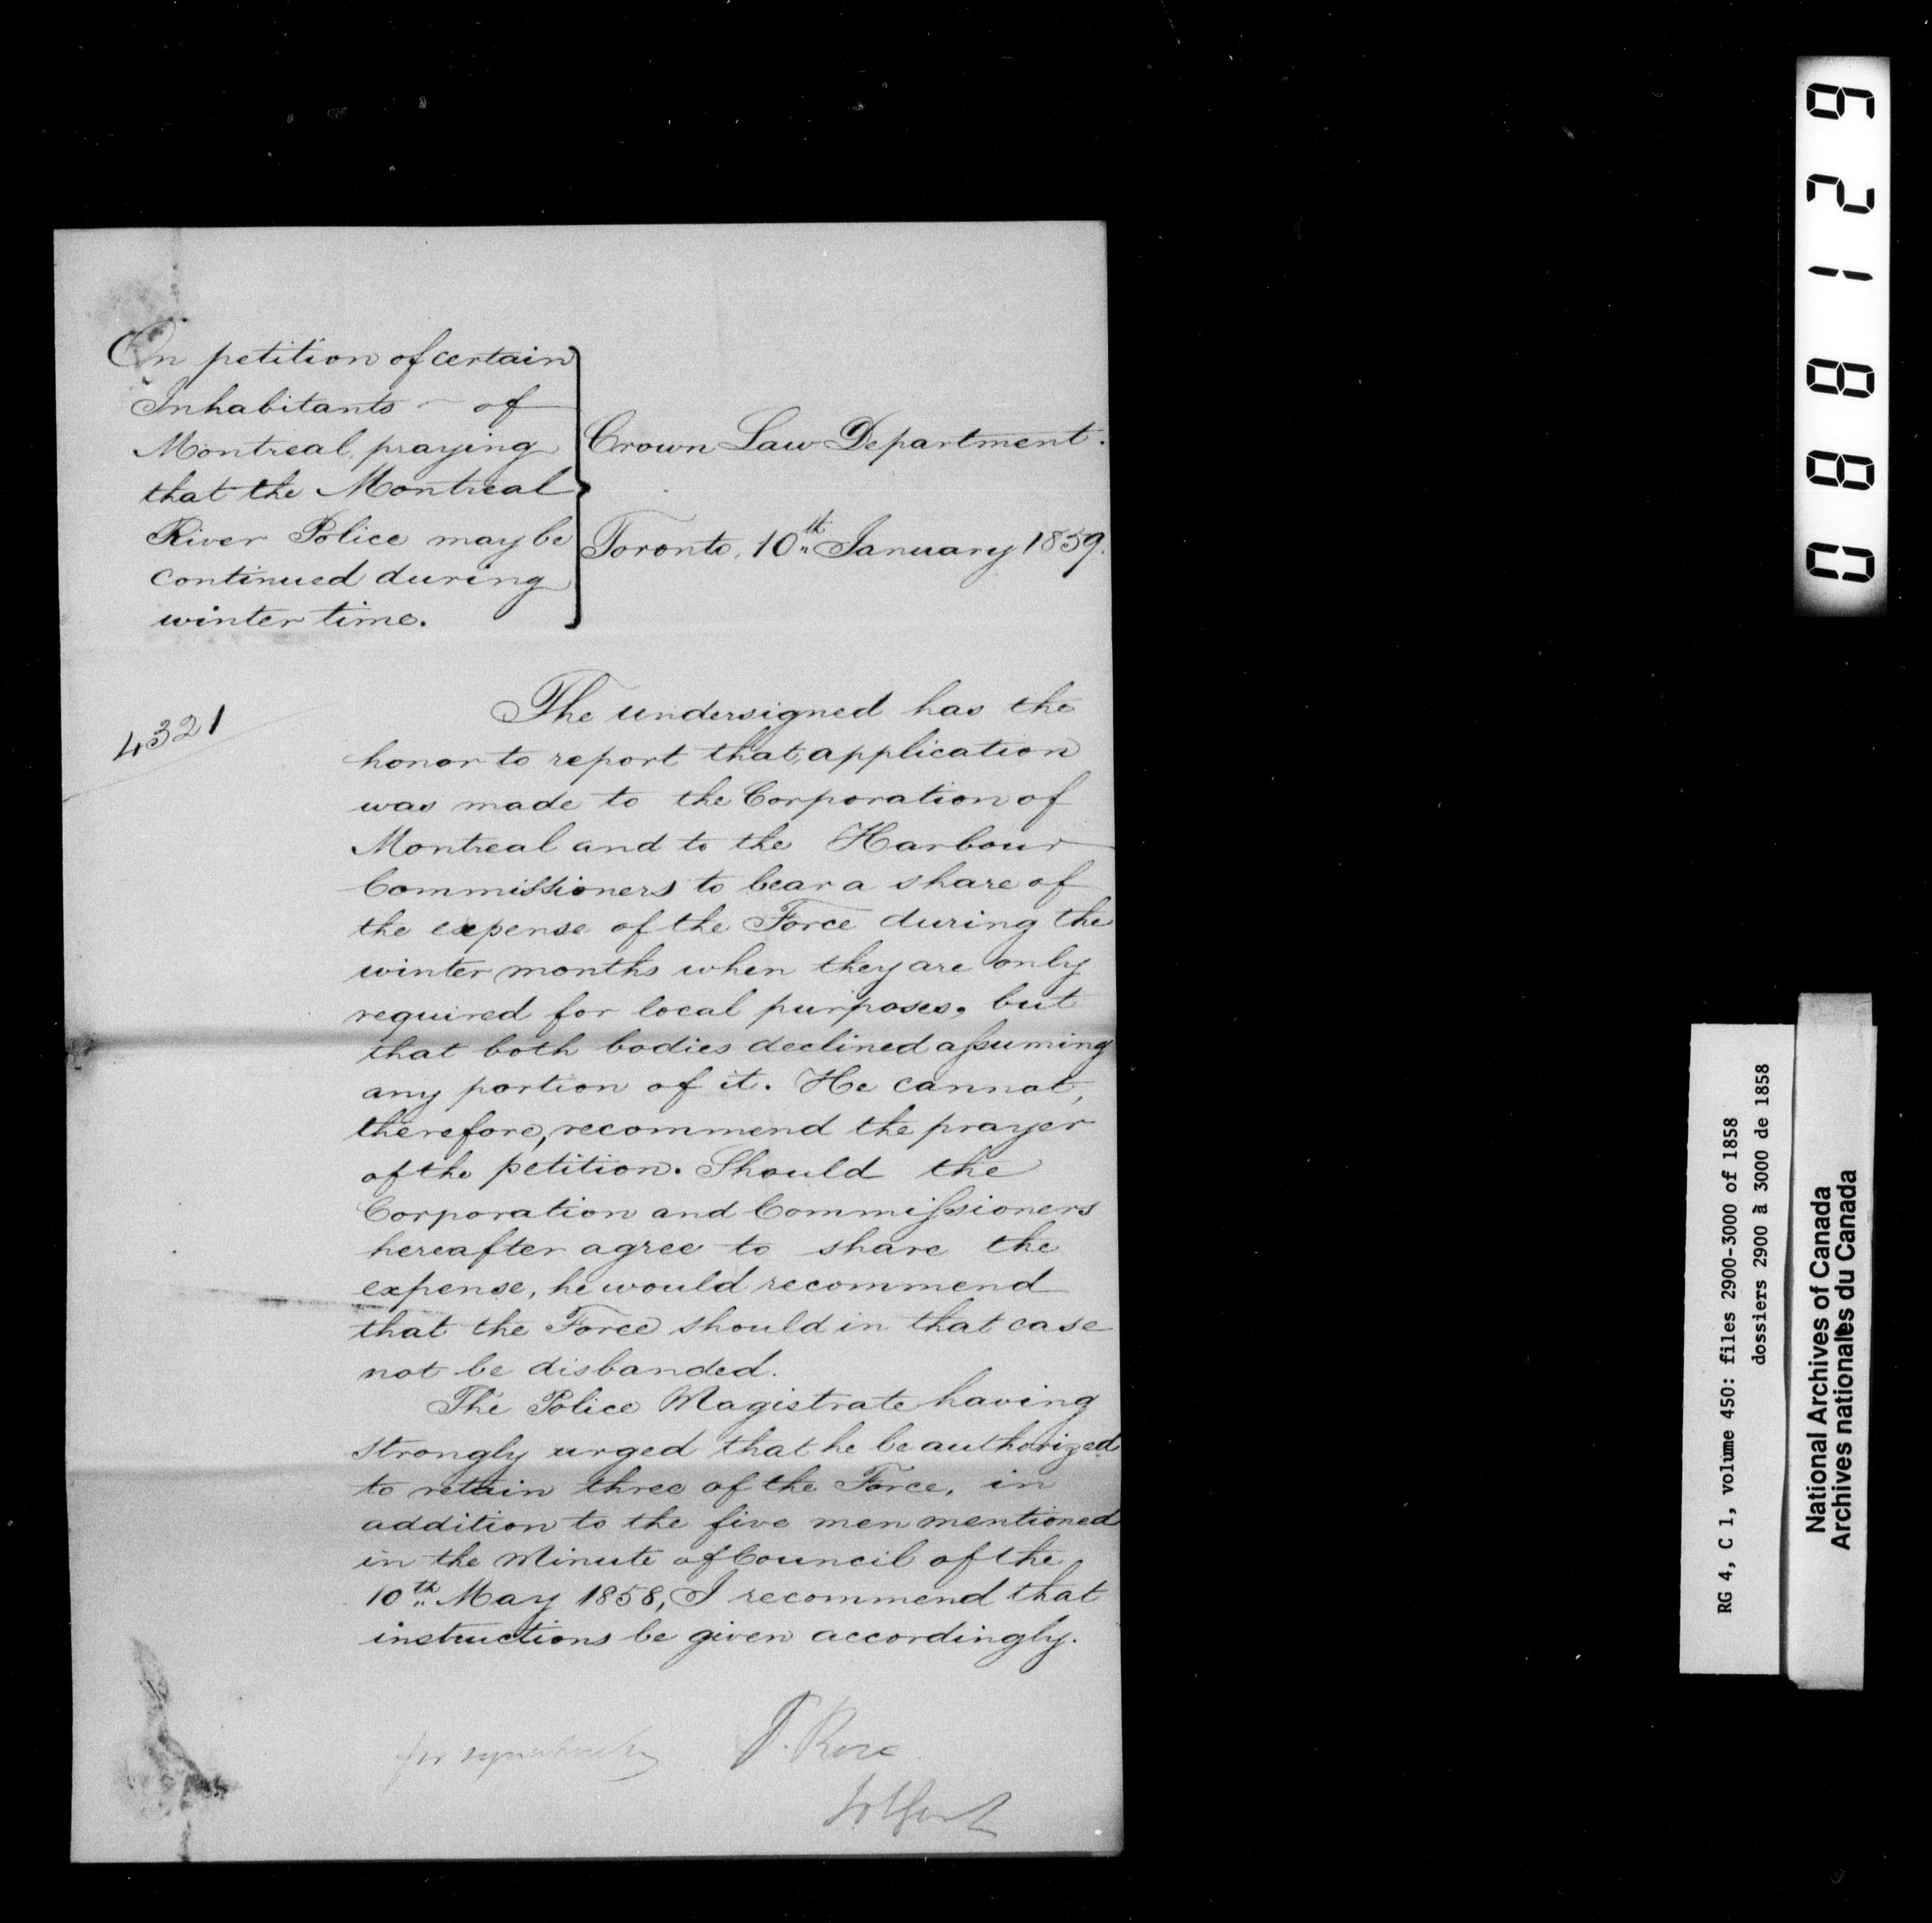 On petition of certain
Inhabitants - of
Montreal, praying
that the Montreal
River Police may be
continued during
winter time.
Crown Law Department.
Toronto, 10th January 1859.
4321
The undersigned has the
honor to report that, application
was made to the Corporation of
Montreal and to the Harbour
Commissioners to bear a share of
the expense of the Force during the
winter months when they are only
required for local purposes, but
that both bodies declined assuming
any portion of it. He cannot,
therefore, recommend the prayer
of the petition. Should the
Corporation and Commissioners
hereafter agree to share the
expense, he would recommend
that the Force should in that case
not be disbanded.
The Police Magistrate having
strongly urged that he be authorized
to retain three of the Force, in
addition to the five men mentioned
in the Minute of Council of the
10th May 1858, I recommend that
instructions be given accordingly.
J. Rose
088129
RG 4, C 1, volume 450: files 2900-3000 of 1858
dossiers 2900 à 3000 de 1858
National Archives of Canada
Archives nationales du Canada